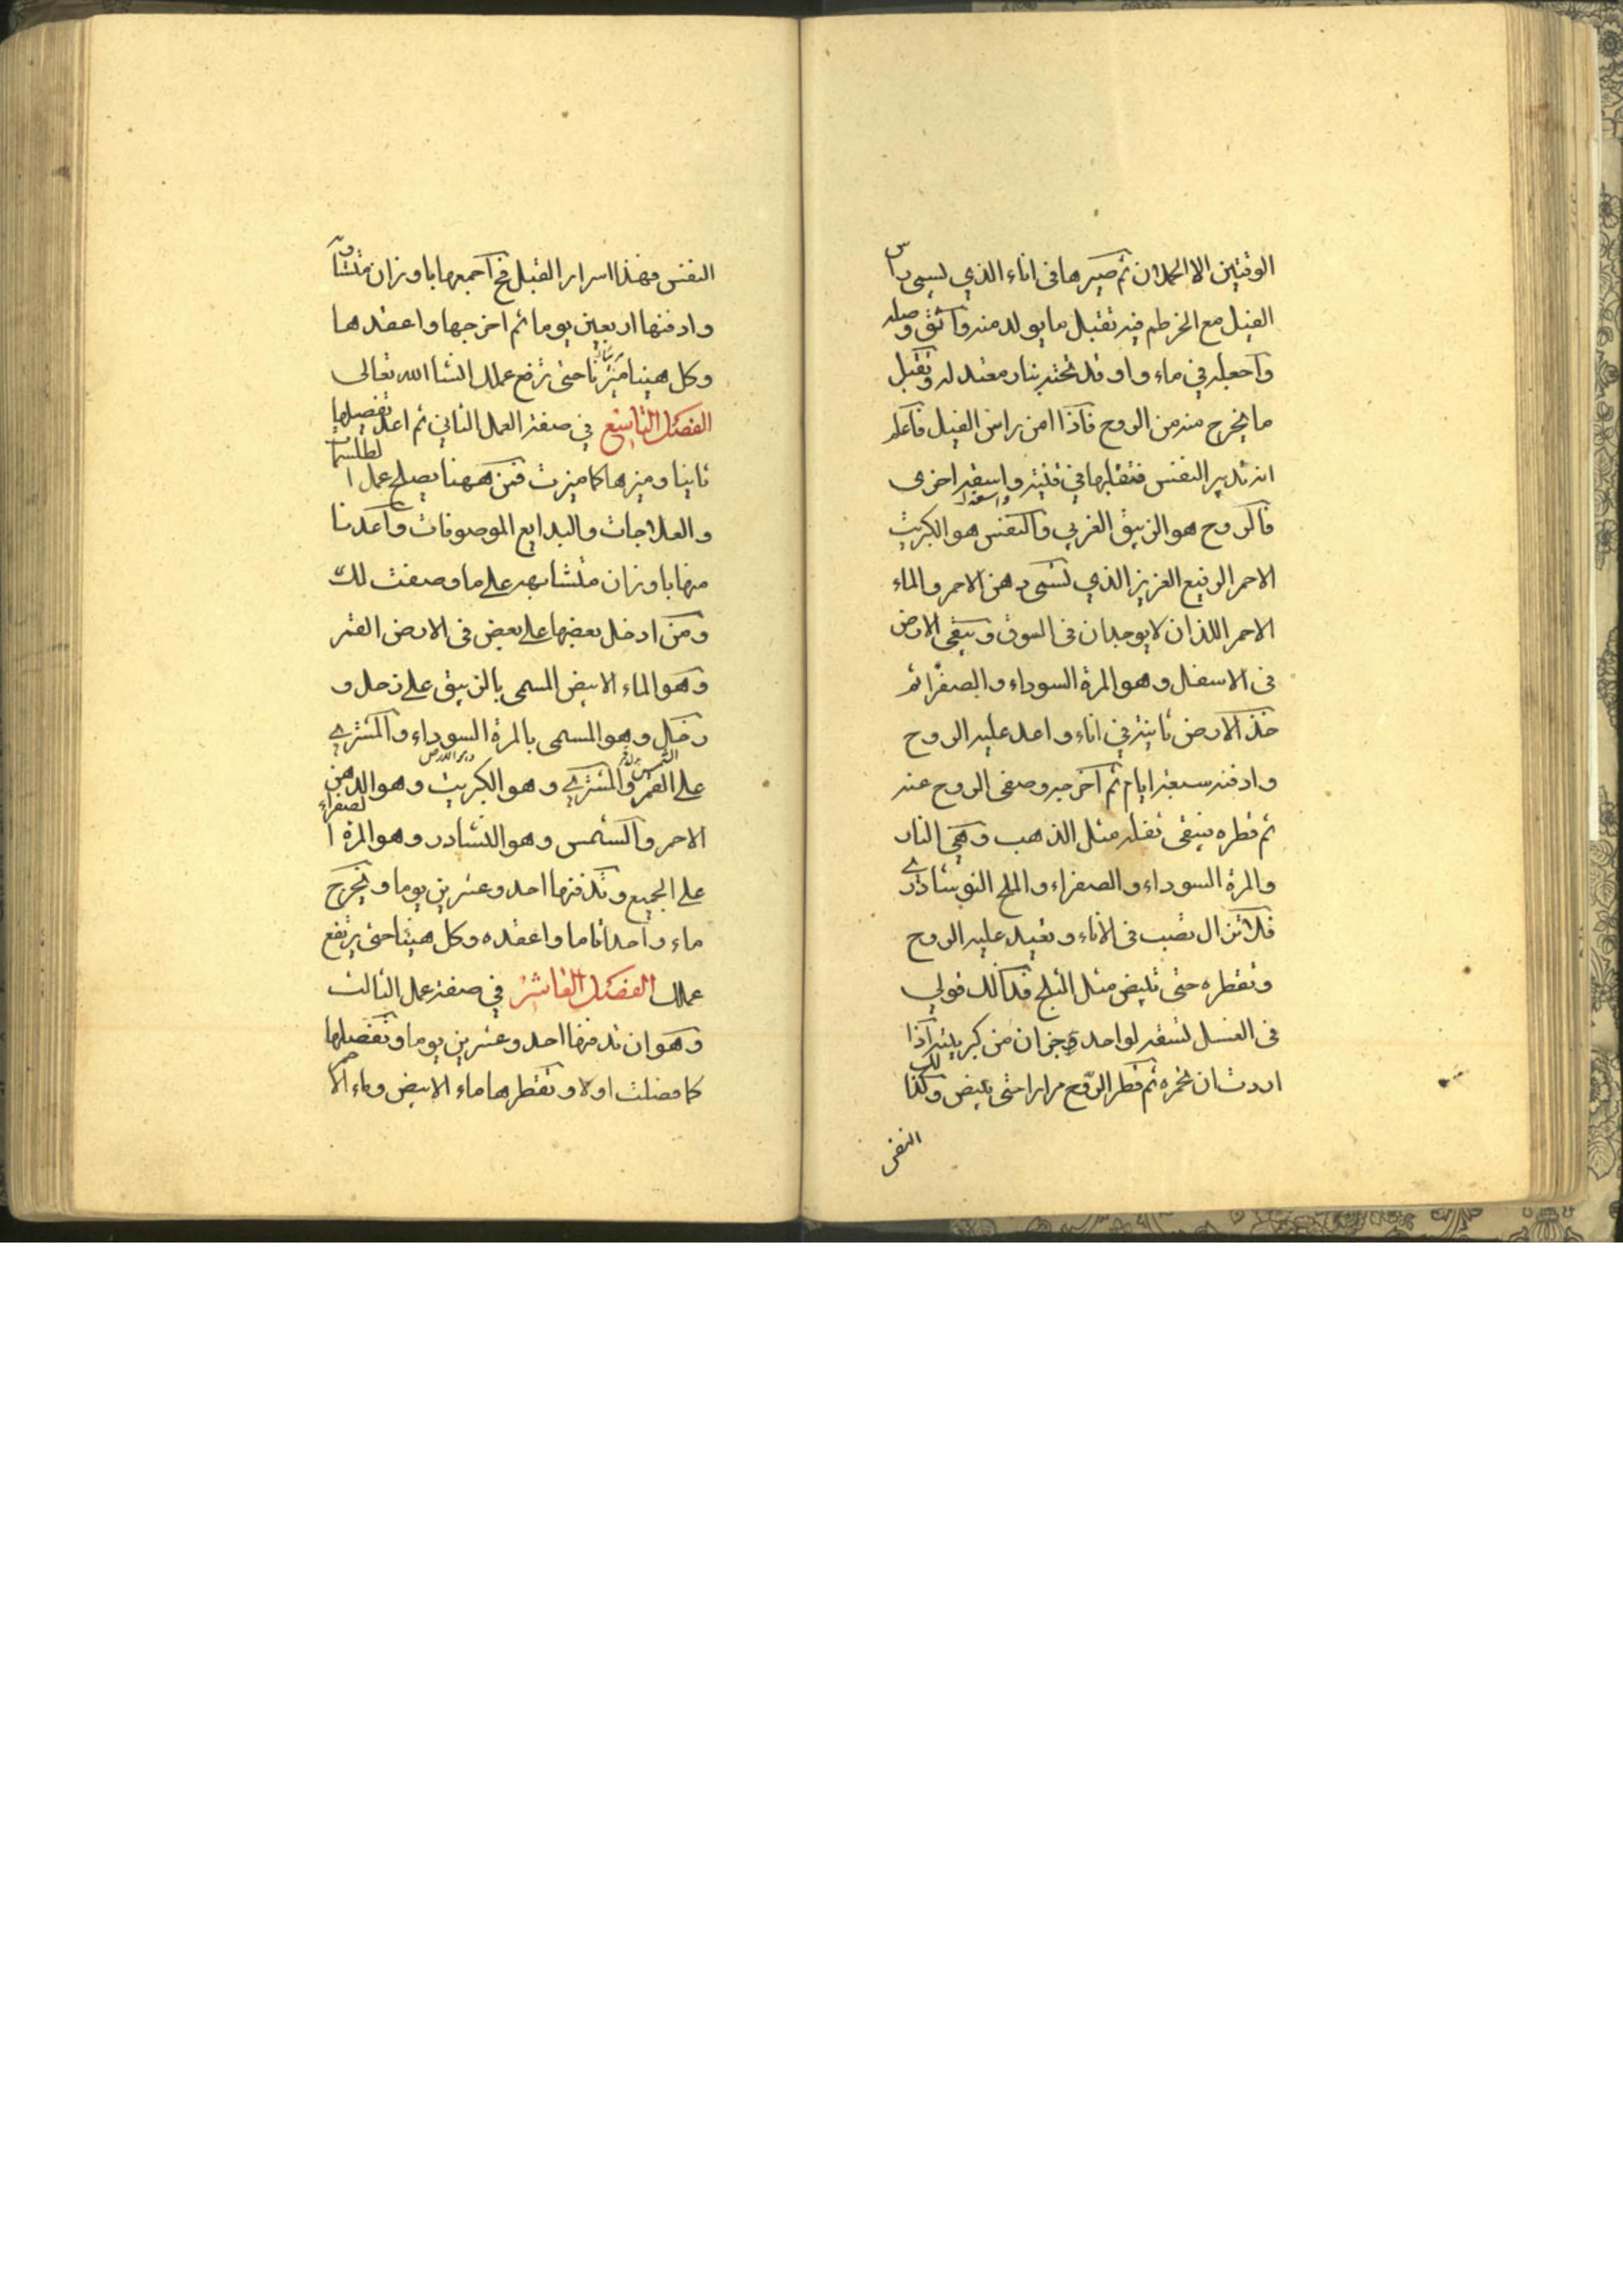 الوقتين الا الحملان ثم صيرها فى اناء الذي يسمى راس
الفيل مع الخرطم فيه تقبل ما يولد منه واثق وصله
واجعله في ماء واوقد تحته بنار معتدله وتقبل
ما يخرج منه من الروح فاذا امن راس الفيل فاعلم
انه تدبير النفس فتقبلها في قنينة واسقه اخرى
فالروح هو الزيبق الغربي والنفس هو الكبريت
الاحمر الرفيع العزيز الذي تسمى دهن الاحمر والماء
الاحمر اللذان لا يوجدان فى السوق ويبقى الارض
فى الاسفل وهو المرة السوداء والصفرا ثم
خذ الارض ثانية في اناء واعد عليه الروح
وادفنه سبعة ايام ثم اخرجه وصفى الروح عنه
ثم قطره يبقى ثفله مثل الذهب وهي النار
والمرة السوداء والصفراء والملح النوشادرى
فلا تزال تصب فى الاناء وتعيد عليه الروح
وتقطره حتى تبيض مثل الثلج فذالك قولي
فى الغسل تسقه لواحد جزان من كبريته اذا
اردت ان تخمره ثم قطر الروح مرارا حتى يبيض وكذلك
النفس
النفس فهذا اسرار القبل اجمعها باوزان متساوى
وادفنها اربعين يوما ثم اخرجها واعقدها
وكل هبنا ميزنا حتى ترفع عملك انشا الله تعالى
الفصل التاسع في صفة العمل الثاني ثم اعد تفصيلها
ثانيا وميزها كما ميزت فمن ههنا يصلح عمل الطلسمات
والعلاجات والبدايع الموصوفات واعدنا
منها باوزان متشابهة على ما وصفت لك
ومن ادخل بعضها على بعض فى الارض القمر
وهو الماء الابيض المسمى بالزيبق على زحل و
زحل وهو المسمى بالمرة السوداء والمشتري
على القمر والمشتري وهو الكبريت وهو الدهن
الاحمر والشمس وهو النشادر وهو المرة الصفراء
على الجميع وتدفنها احد وعشرين يوما ويخرج
ماء واحدا تاما واعقده وكل هبنا حتى يرتفع
عملك الفصل العاشر في صفة عمل الثالث
وهو ان تدفنها احد وعشرين يوما وتفصلها
كما فصلت اولا وتقطرها ماء الابيض وماء الاحمر